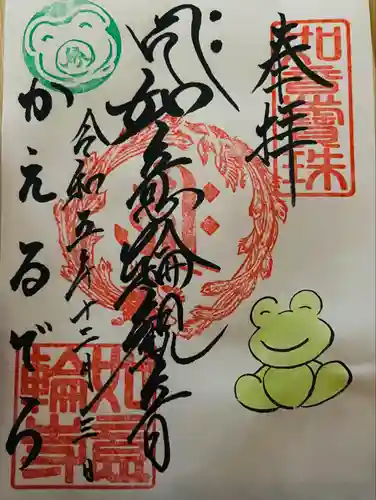 奉拝
如意寶珠
如意輪観音
令和五年十二月三日
かえるでら
如意輪寺